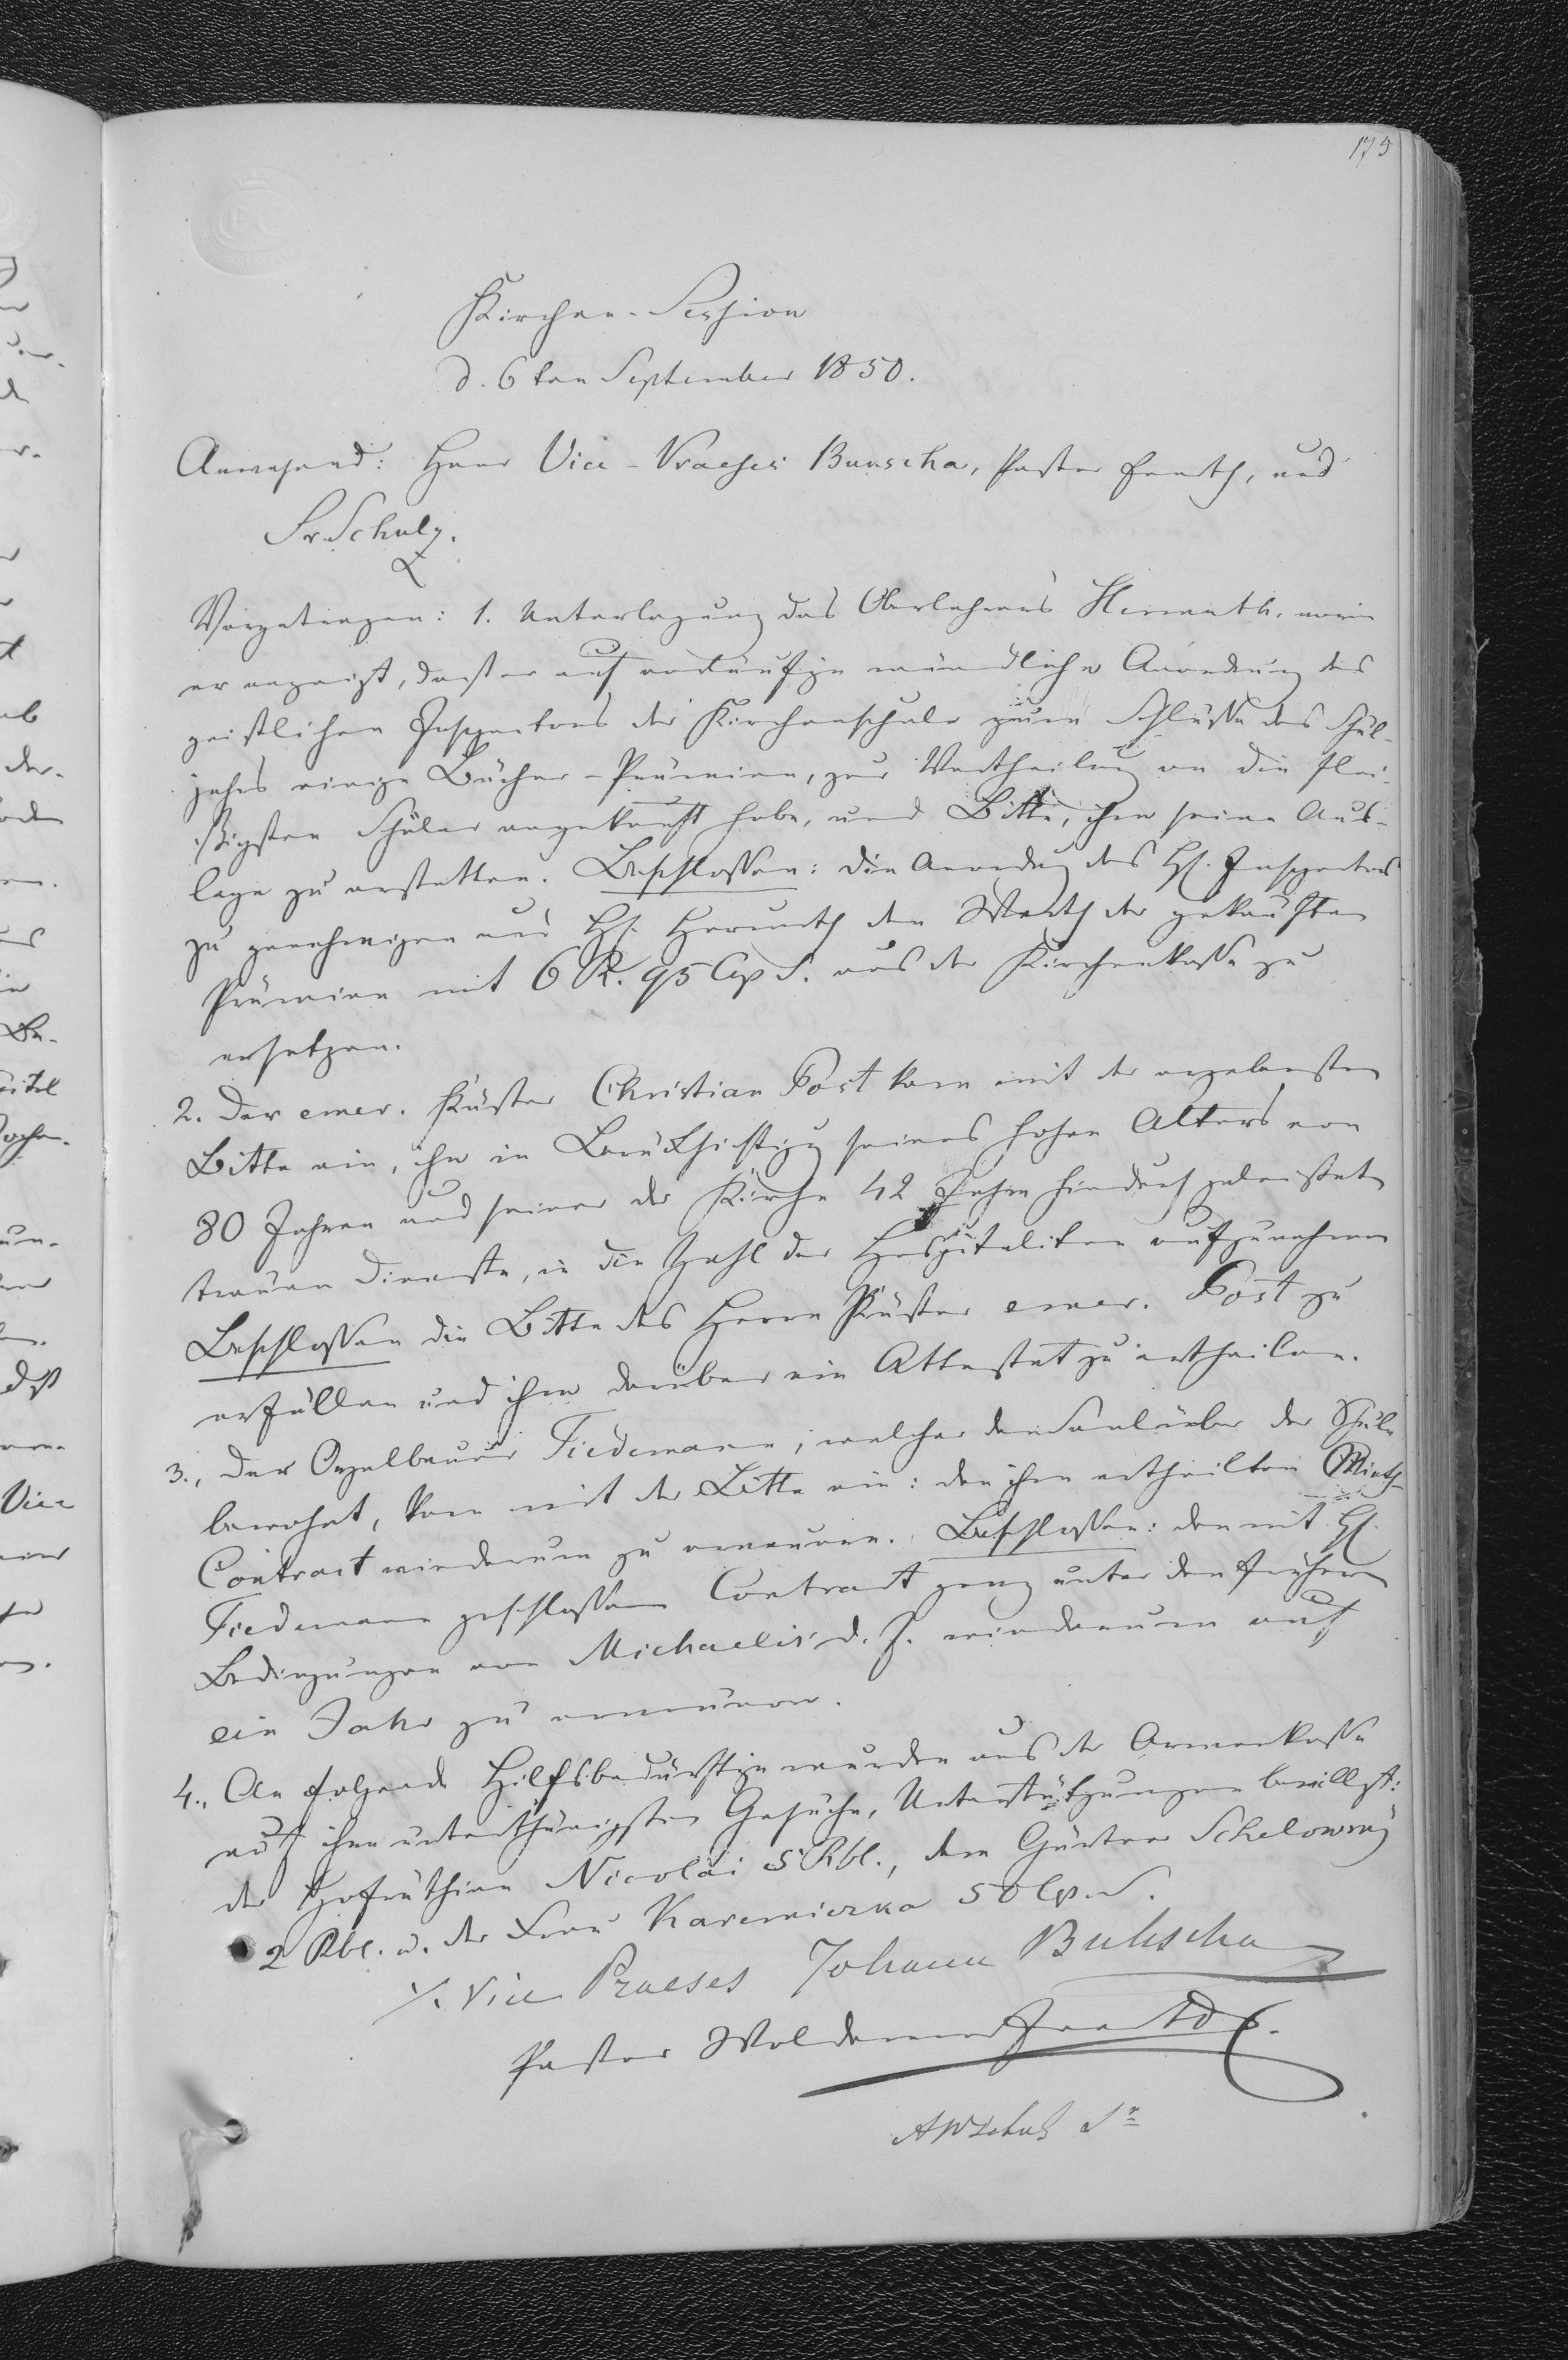 175
Kirchen-Session
d. 6ten September 1850.
Anwesend: Herr Vice-Praeses Bunscha, Pastor Ferndt, und
Sr. Schulz.
Vorgetragen: 1. Unterlegung des Oberlehrers Hermuth, worin
er anzeigt, daß er auf vorläufige mündliche Anordnung des
geistlichen Inspectors der Kirchenschule zum Schlusse des Schul-
jahrs einige Bücher-Prämien, zur Vertheilung an die flei-
ßigsten Schüler angekauft habe, und Bitte, ihm seine Aus-
lage zu erstatten. Beschlossen: die Anordng des H. Inspectors
zu genehmigen und H. Hermuth den Werth der gekauften
Prämien mit 6 R. 95 Cop S. aus der Kirchenkasse zu
ersetzen.
2. Der emer. Küster Christian Post kam mit der ergebensten
Bitte ein, ihn in Berücksichtigg seines hohen Alters von
80 Jahren und seiner der Kirche 42 Jahre hindurch geleisteten
treuen Dienste, in die Zahl der Hospitaliten aufzunehmen
Beschlossen die Bitte des Herrn Küster emer. Post zu
erfüllen und ihm darüber ein Attestat zu ertheilen.
3., Der Orgelbauer Tiedemann, welcher den Souterrain der Schule
bewohnt, kam mit der Bitte ein: den ihm ertheilten Mieth-
Contract wiederum zu erneuern. Beschlossen: den mit H.
Tiedemann geschlossenen Contract ganz unter den frühern
Bedingungen von Michaelis d. J. wiederum auf
ein Jahr zu erneuern.
4., An folgende Hilfsbedürftige wurden aus der Armenkasse
auf ihre unterthänigsten Gesuche, Unterstützungen bewilligt:
der Hofräthinn Nicolai 5 Rbl., dem Gärtner Schelowsky
2 Rbl. u. der Frau Karewiczka 50 Cp. S.
Vice Praeses Johann Buhscha
Pastor Woldemar
AWSchulz Sr